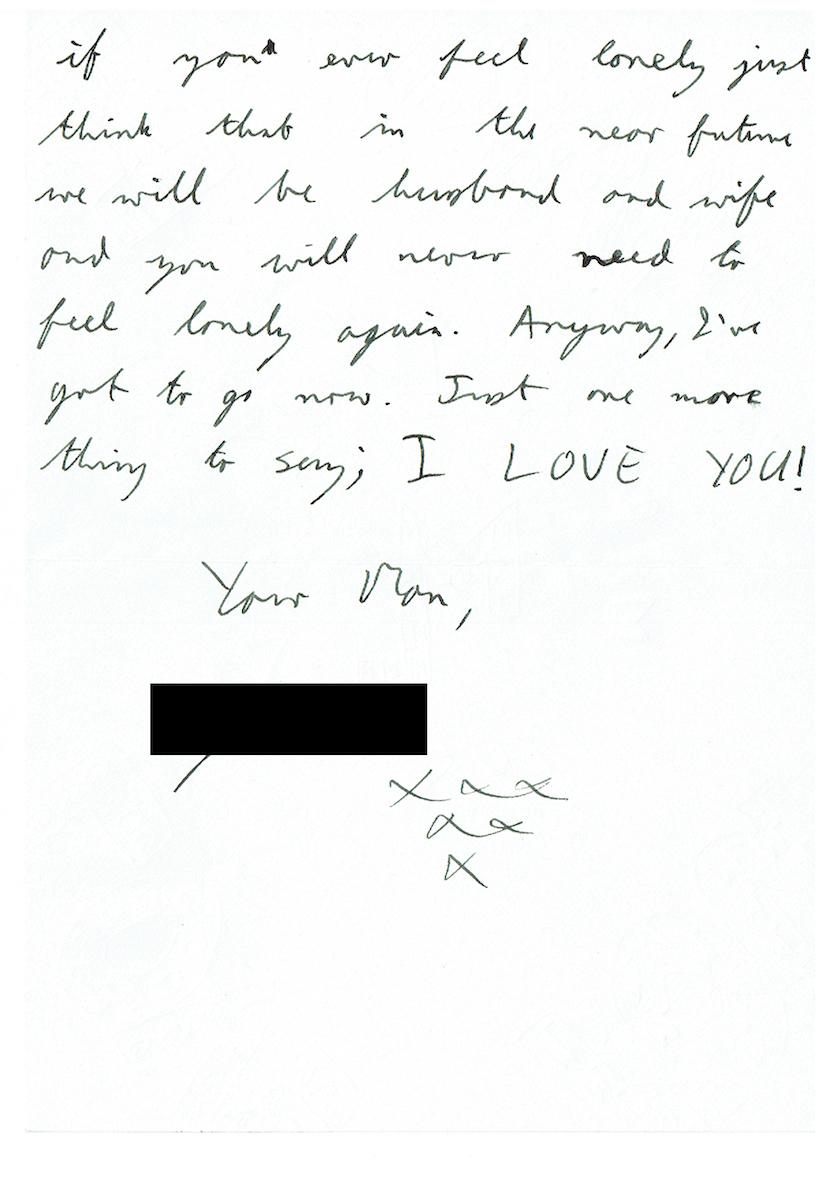 if you ever feel lonely just
think that in the near future
we will be husband and wife
and you will never need to
feel lonely again. Anyway, I've
got to go now. Just one more
thing to say; I LOVE YOU!
Your Man,
x x x
x x
x